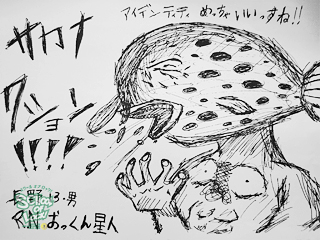 アイデンティティ めっちゃいいっすね!!
サカナ
クション
!!!!
長野 13・男
RN おっくん星人